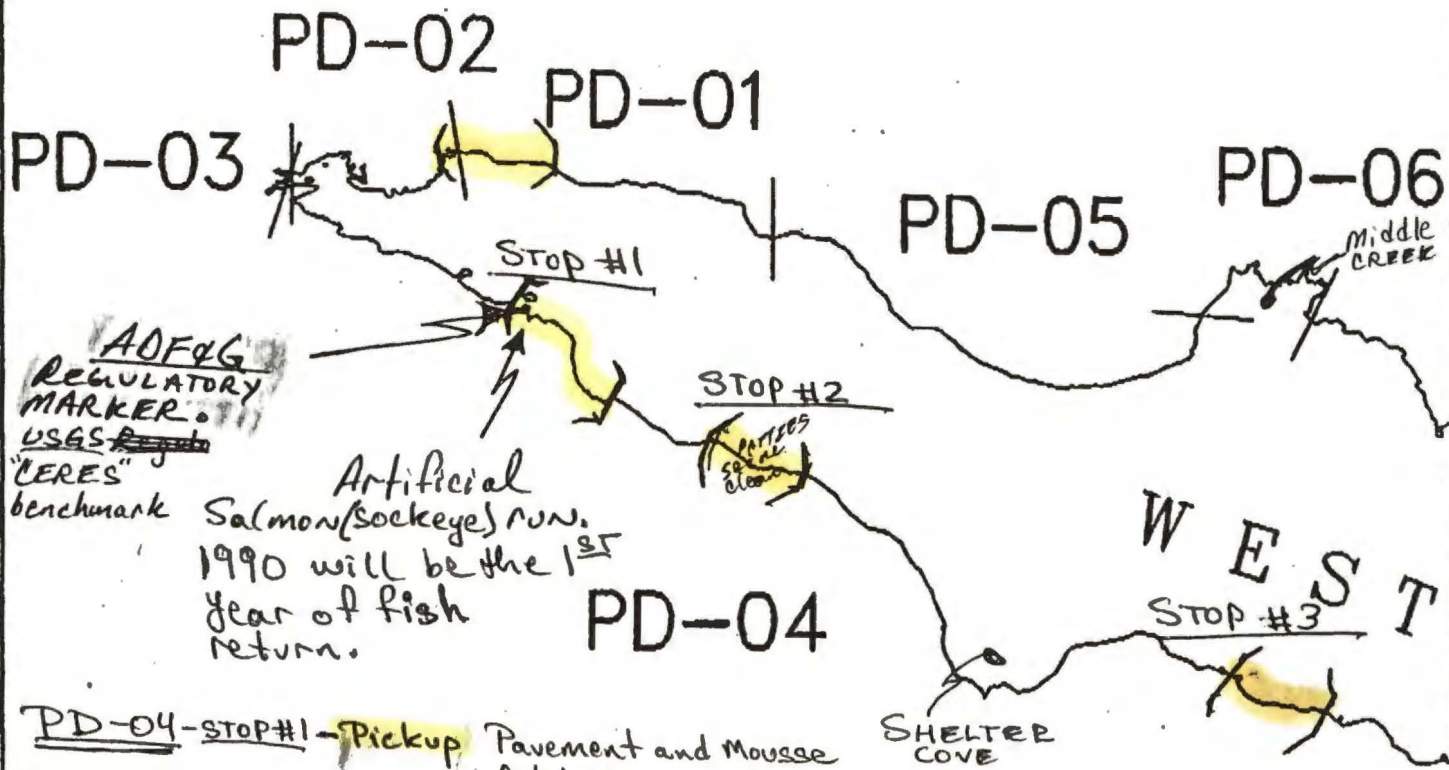 PD-02
PD-01
PD-03
PD-06
Middle
CREEK
PD-05
STOP #1
ADF&G
REGULATORY
MARKER.
USGS
"CERES"
benchmark
STOP #2
PATTIES
clean
Artificial
Salmon (sockeye) run.
1990 will be the 1ST
year of fish
return.
PD-04
WEST
STOP #3
SHELTER
COVE
PD-04-STOP#1-Pickup Pavement and Mousse